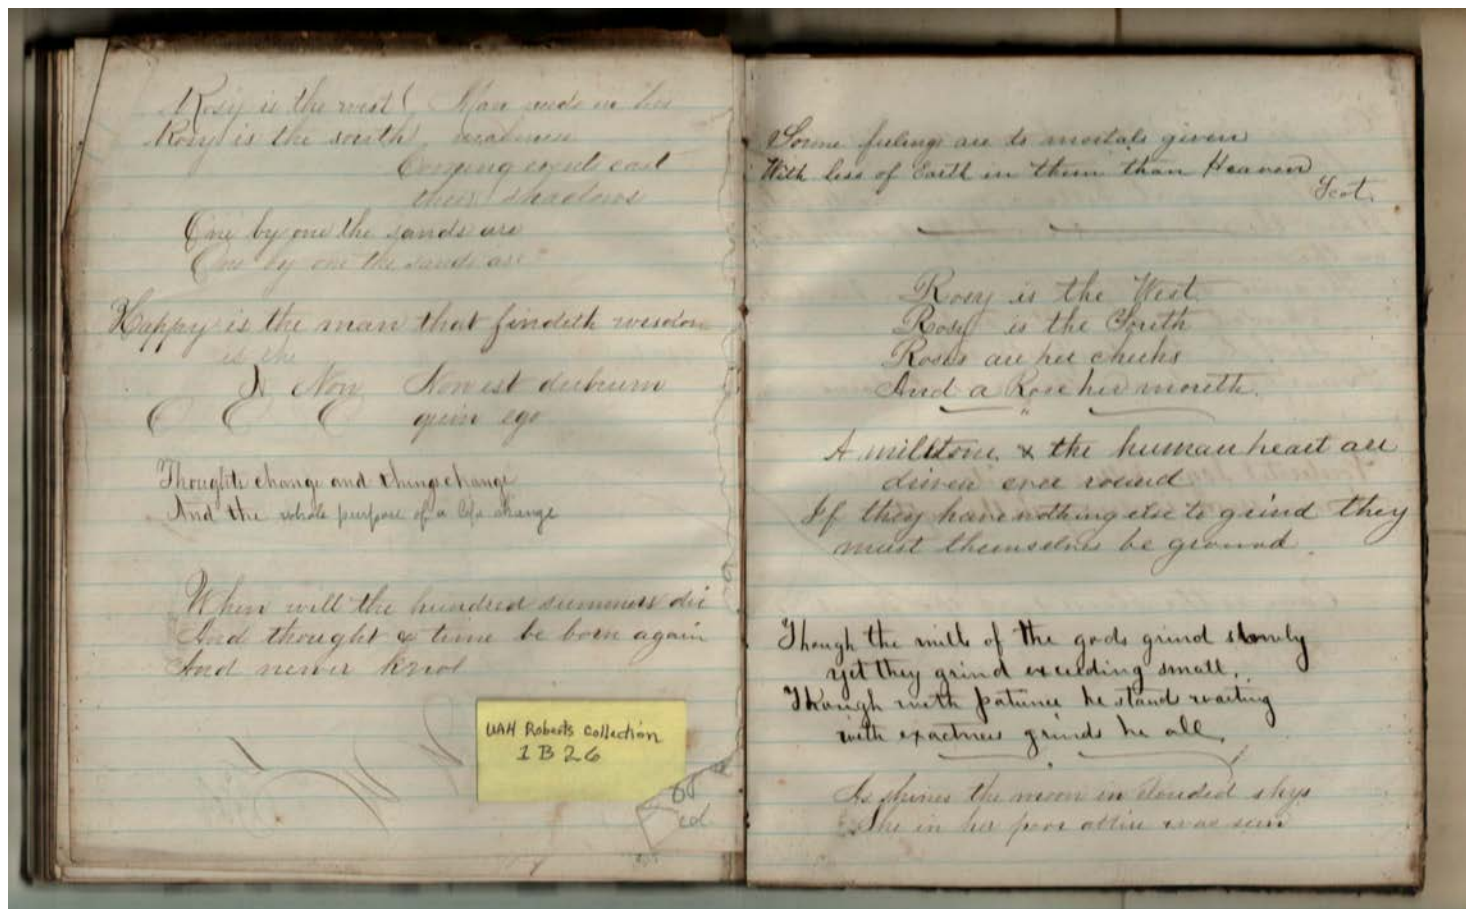 Rosy is the west ( Man ends in his
Rosy is the south madness
Coming events cast
their shadows
One by one the sands are
One by one the sands are
Happy is the man that findeth wisdom
is the
Non Non est dubium
quin ego
Thoughts change and things change
And the whole purpose of a life change
When will the hundred summers die
And thought & time be born again
And newer knol
UAH Roberts Collection
1B26
Some feelings are to mortals given
With less of Earth in them than Heaven
Scot.
Rosy is the West
Rosy is the South
Roses are her cheeks
And a Rose her mouth.
A millstone & the human heart are
driven ever round
If they have nothing else to grind they
must themselves be ground.
Though the mills of the gods grind slowly
yet they grind exceeding small,
Though with patience he stand waiting
with exactness grinds he all.
As shines the moon in clouded skys
She in her poor attire was seen